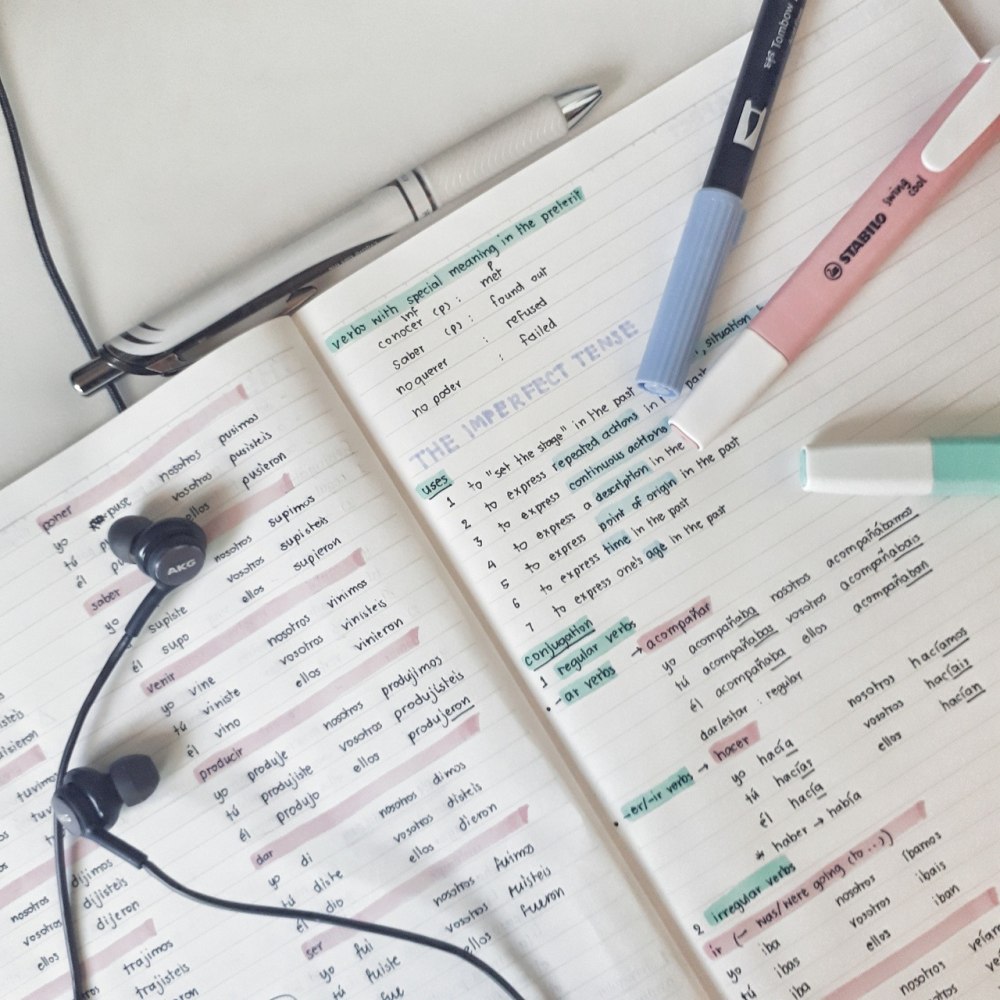 poner
yo puse nosotros pusimos
tú vosotros pusisteis
él ellos pusieron
saber
yo nosotros supimos
tú supiste vosotros supisteis
él supo ellos supieron
venir
yo vine nosotros vinimos
tú viniste vosotros vinisteis
él vino ellos vinieron
producir
yo produje nosotros produjimos
tú produjiste vosotros produjisteis
él produjo ellos produjeron
dar
yo di nosotros dimos
tú diste vosotros disteis
él dio ellos dieron
ser
yo fui nosotros fuimos
tú fuiste vosotros fuisteis
ellos fueron
nosotros dijimos
vosotros dijisteis
ellos dijeron
trajimos
trajisteis
AKG
verbs with special meaning in the preterit
inf P
conocer (p) : met
saber (p) : found out
no querer : refused
no poder : failed
THE IMPERFECT TENSE
uses
1 to "set the stage" in the past , situation
2 to express repeated actions in past
3 to express continuous actions
4 to express a description in the
5 to express point of origin in the past
6 to express time in the past
7 to express one's age in the past
conjugation
1 regular verbs
- ar verbs → acompañar
yo acompañaba nosotros acompañábamos
tú acompañabas vosotros acompañabais
él acompañaba ellos acompañaban
dar/estar : regular
-er/-ir verbs → hacer
yo hacía nosotros hacíamos
tú hacías vosotros hacíais
él hacía ellos hacían
* haber → había
2 irregular verbs
ir (~ was/were going (to...))
yo iba nosotros íbamos
tú ibas vosotros ibais
iba ellos iban
nosotros
Tombow
STABILO swing cool